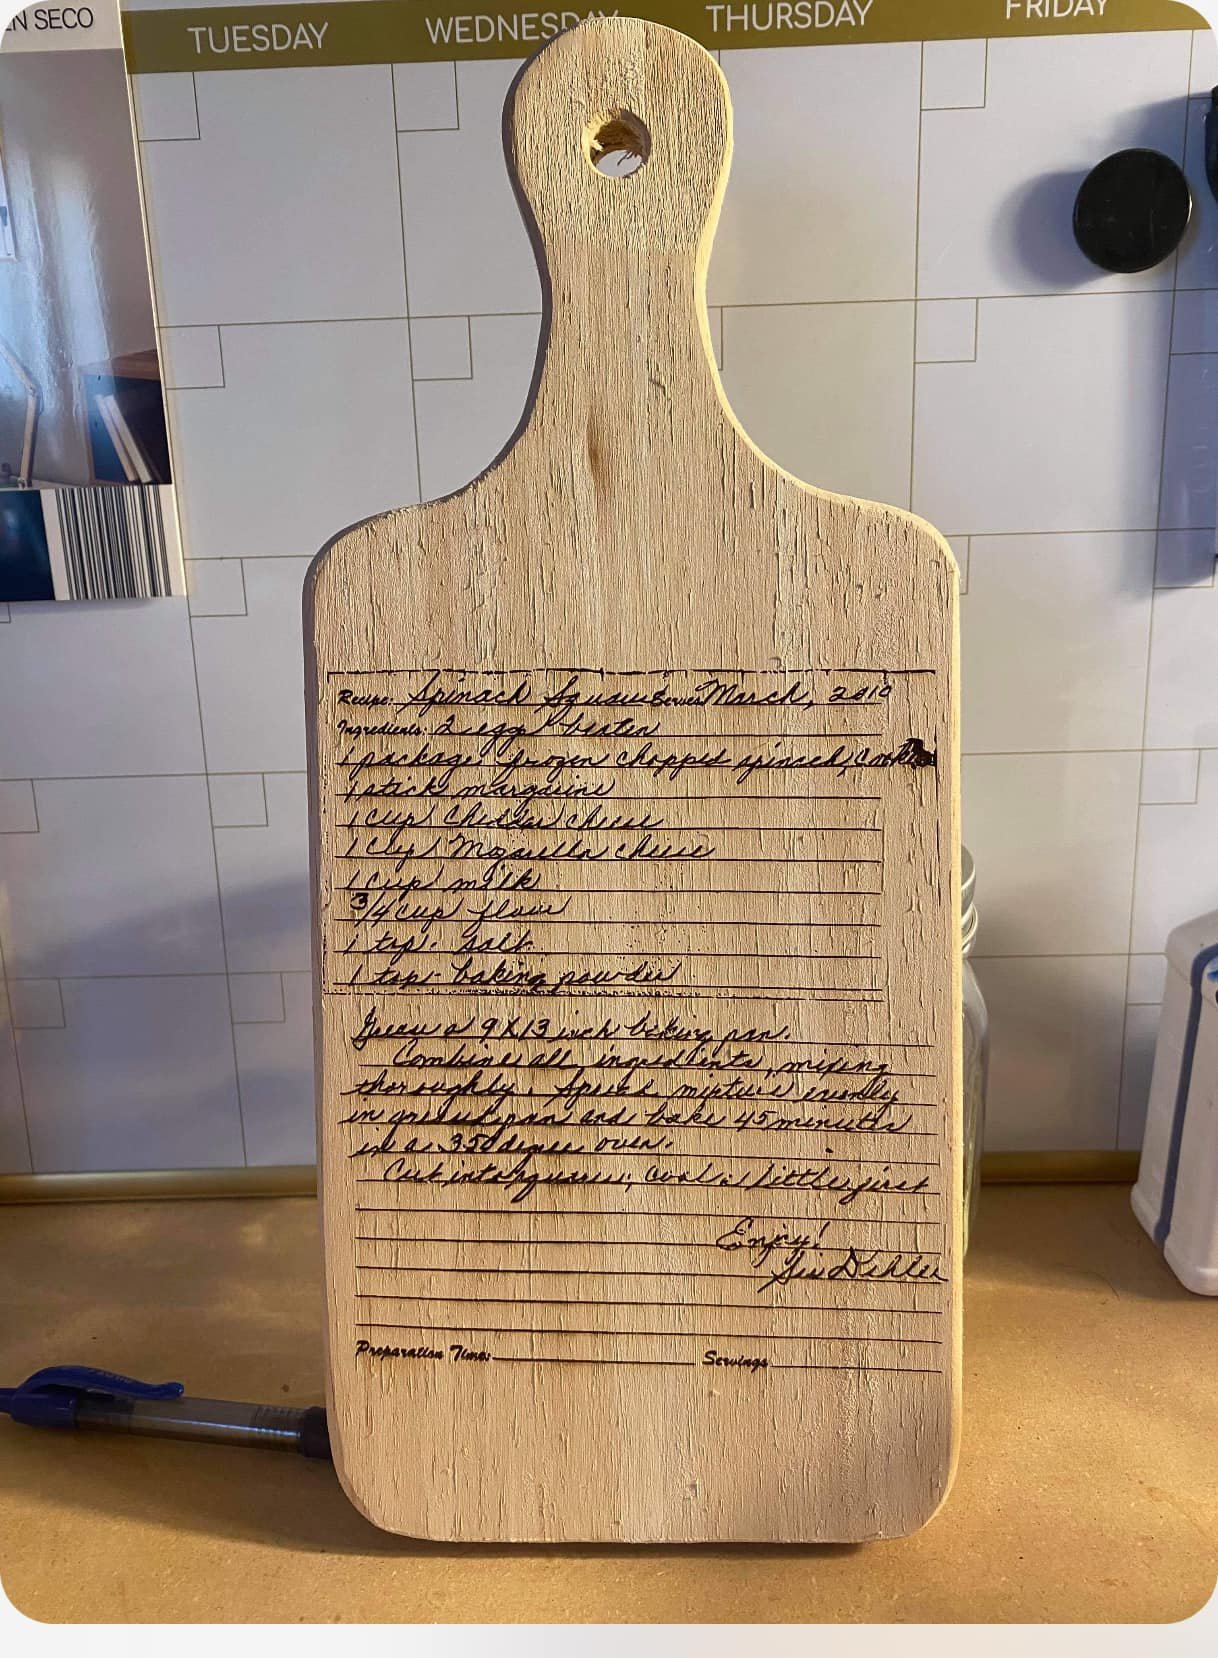 EN SECO
TUESDAY
WEDNESDAY
THURSDAY
FRIDAY
Recipe: Spinach Squares Serves March, 2010
Ingredients: 2 eggs beaten
1 package frozen chopped spinach,
1 stick margarine
1 cup Cheddar cheese
1 cup Mozarella cheese
1 cup milk
3/4 cup flour
1 tsp. salt
1 tsp. baking powder
Grease a 9X13 inch baking pan.
Combine all ingredients, mixing
thoroughly. Spread mixture evenly
in greased pan and bake 45 minutes
in a 350 degree oven.
Cut into squares; cool a little first
Enjoy!
Sis Dehler
Preparation Time: Servings